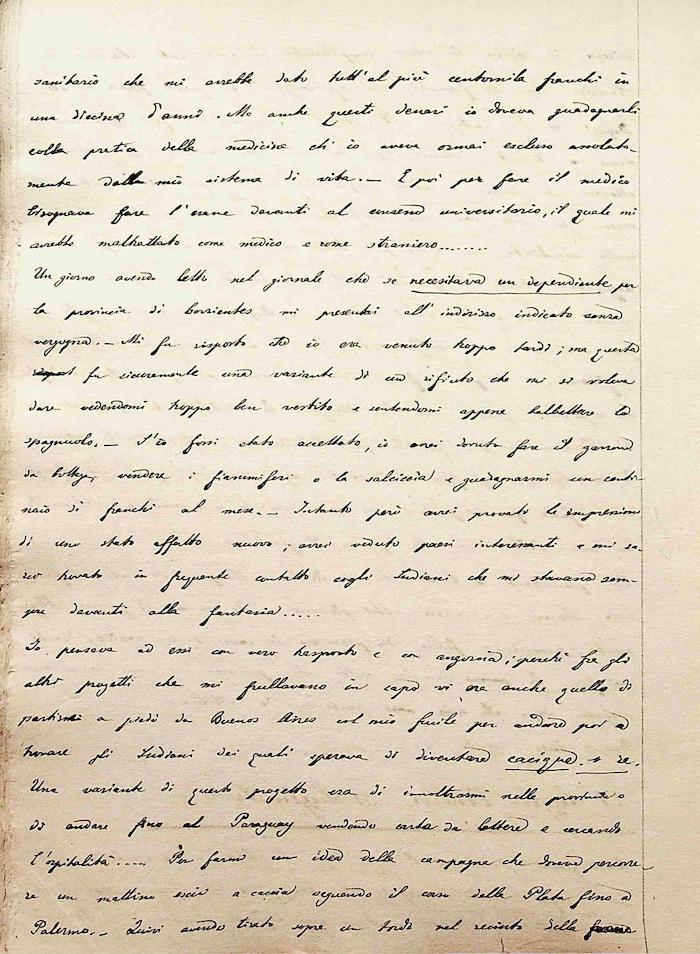 sanitario che mi avrebbe dato tutt'al più centomila franchi in
una diecina d'anni. Ma anche questi denari io doveva guadagnarli
colla pratica della medicina ch'io aveva ormai escluso assoluta-
mente dalla mio sistema di vita. — E poi per fare il medico
bisognava fare l'esame davanti al consesso universitario, il quale mi
avrebbe maltrattato come medico e come straniero.......
Un giorno avendo letto nel giornale che se necesitava un dependiente per
la provincia di Corrientes mi presentai all'indirisso indicato senza
vergogna. — Mi fu risposto che io era venuto troppo tardi; ma questa
fu sicuramente una variante di un rifiuto che mi si voleva
dare vedendomi troppo ben vestito e sentendomi appena balbettare lo
spagnuolo. — S'io fossi stato accettato, io avrei dovuto fare il garzone
da bottega, vendere i fiammiferi o la salciccia e guadagnarmi un centi-
naio di franchi al mese. — Intanto però avrei provato le impressioni
di uno stato affatto nuovo; avrei veduto paesi interessanti e mi sa-
rei trovato in frequente contatto cogli Indiani che mi stavano sem-
pre davanti alla fantasia.....
Io pensava ad essi con vero trasporto e con angoscia; perchè fra gli
altri progetti che mi frullavano in capo vi era anche quello di
partirmi a piedi da Buenos Aires col mio fucile per andare poi a
trovare gli Indiani dei quali sperava di diventare cacique e re.
Una variante di questo progetto era di innoltrarmi nelle provincie o
di andare fino al Paraguay vendendo carta da lettere e cercando
l'ospitalità..... Per farmi un idea della campagna che doveva percorre-
re un mattino escii a caccia seguendo il corso della Plata fino a
Palermo. — Quivi avendo tirato sopra un tordo nel recinto della